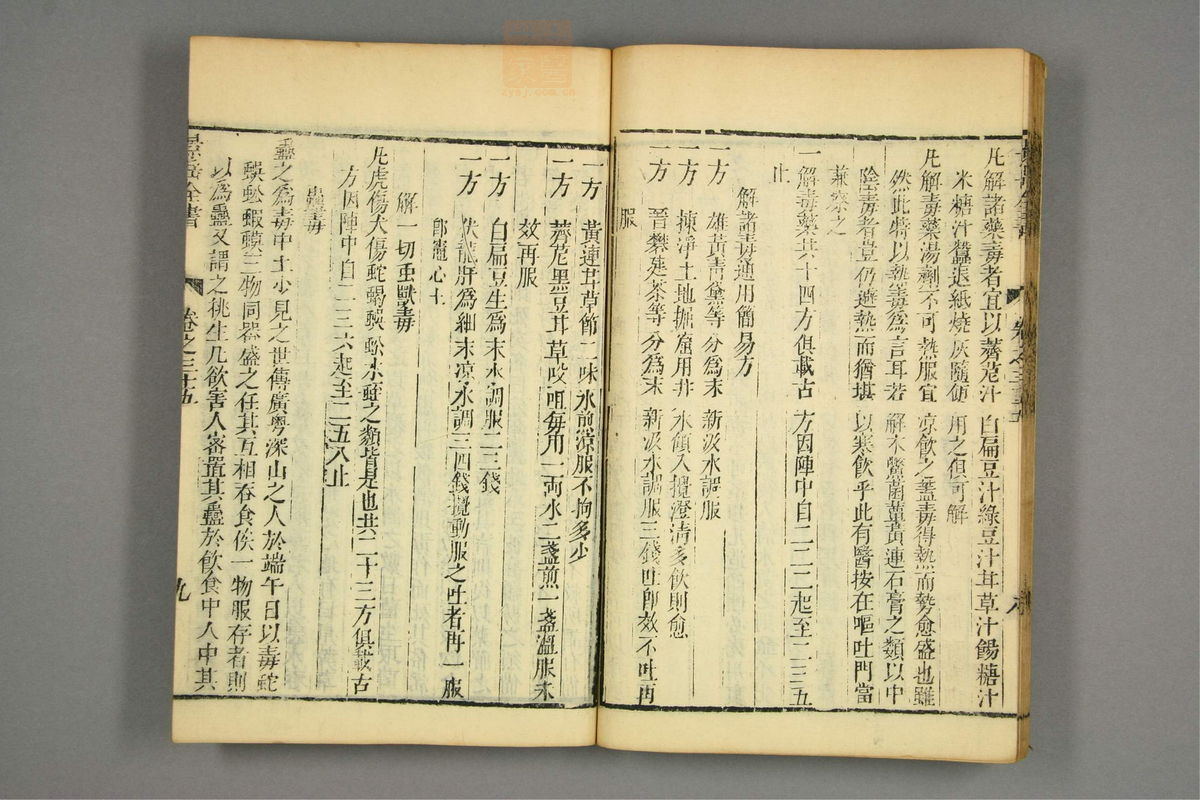 凡解諸藥毒者宜以薺苨汁白扁豆汁綠豆汁甘草汁餳糖汁
米糖汁蠶退紙燒灰隨便用之俱可解
凡解毒藥湯劑不可熱服宜涼飲之蓋毒得熱而勢愈盛也雖
然此特以熱毒為言耳若解木鱉菌蕈黃連石膏之類以中
陰毒者豈仍避熱而猶堪以寒飲乎此有醫按在嘔吐門當
兼察之
一解毒藥共十四方俱載古方因陣中自二二二起至二三五
止
解諸毒通用簡易方
一方 雄黃青黛等分為末新汲水調服
一方 揀淨土地掘窟用井水傾入攪澄清多飲則愈
一方 晉礬建茶等分為末新汲水調服三錢吐即效不吐再
服
一方 黃連甘草節二味水煎涼服不拘多少
一方 薺苨黑豆甘草㕮咀每用一兩水二盞煎一盞溫服未
效再服
一方 白扁豆生為末水調服二三錢
一方 伏龍肝為細末涼水調三四錢攪動服之吐者再一服
即竈心土
解一切蟲獸毒
凡虎傷犬傷蛇蝎蜈蚣水蛭之類皆是也共二十三方俱載古
方因陣中自二三六起至二五八止
蠱毒
蠱之為毒中土少見之世傳廣粵深山之人於端午日以毒蛇
蜈蚣蝦蟇三物同器盛之任其互相吞食俟一物服存者則
以為蠱又謂之挑生凡欲害人密置其蠱於飲食中人中其
景岳全書
卷之三十五
九
景岳全書
卷之三十五
zysj.com.cn